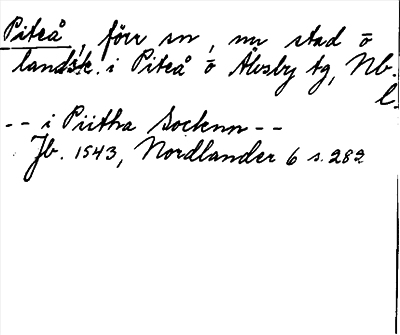 Piteå, förr sn, nu stad o
landsk. i Piteå o Älvsby tg, Nb.
l.
-- i Piitha Sockenn --
Jb. 1543, Nordlander 6 s. 282